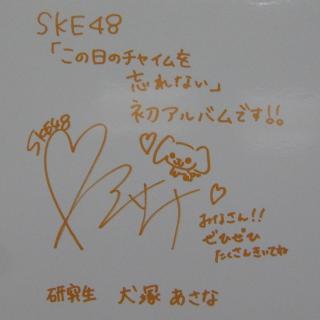 SKE48
「この日のチャイムを
忘れない」
初アルバムです!!
SKE48
みなさん!!
ぜひぜひ
たくさんきいてね
研究生 犬塚 あさな